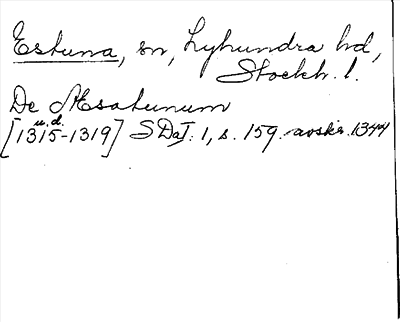 Estuna, sn, Lyhundra hd,
Stockh. l.
De Æsatunum
u.d.
[1315-1319] SDaJ: 1, s. 159. avskr. 1344